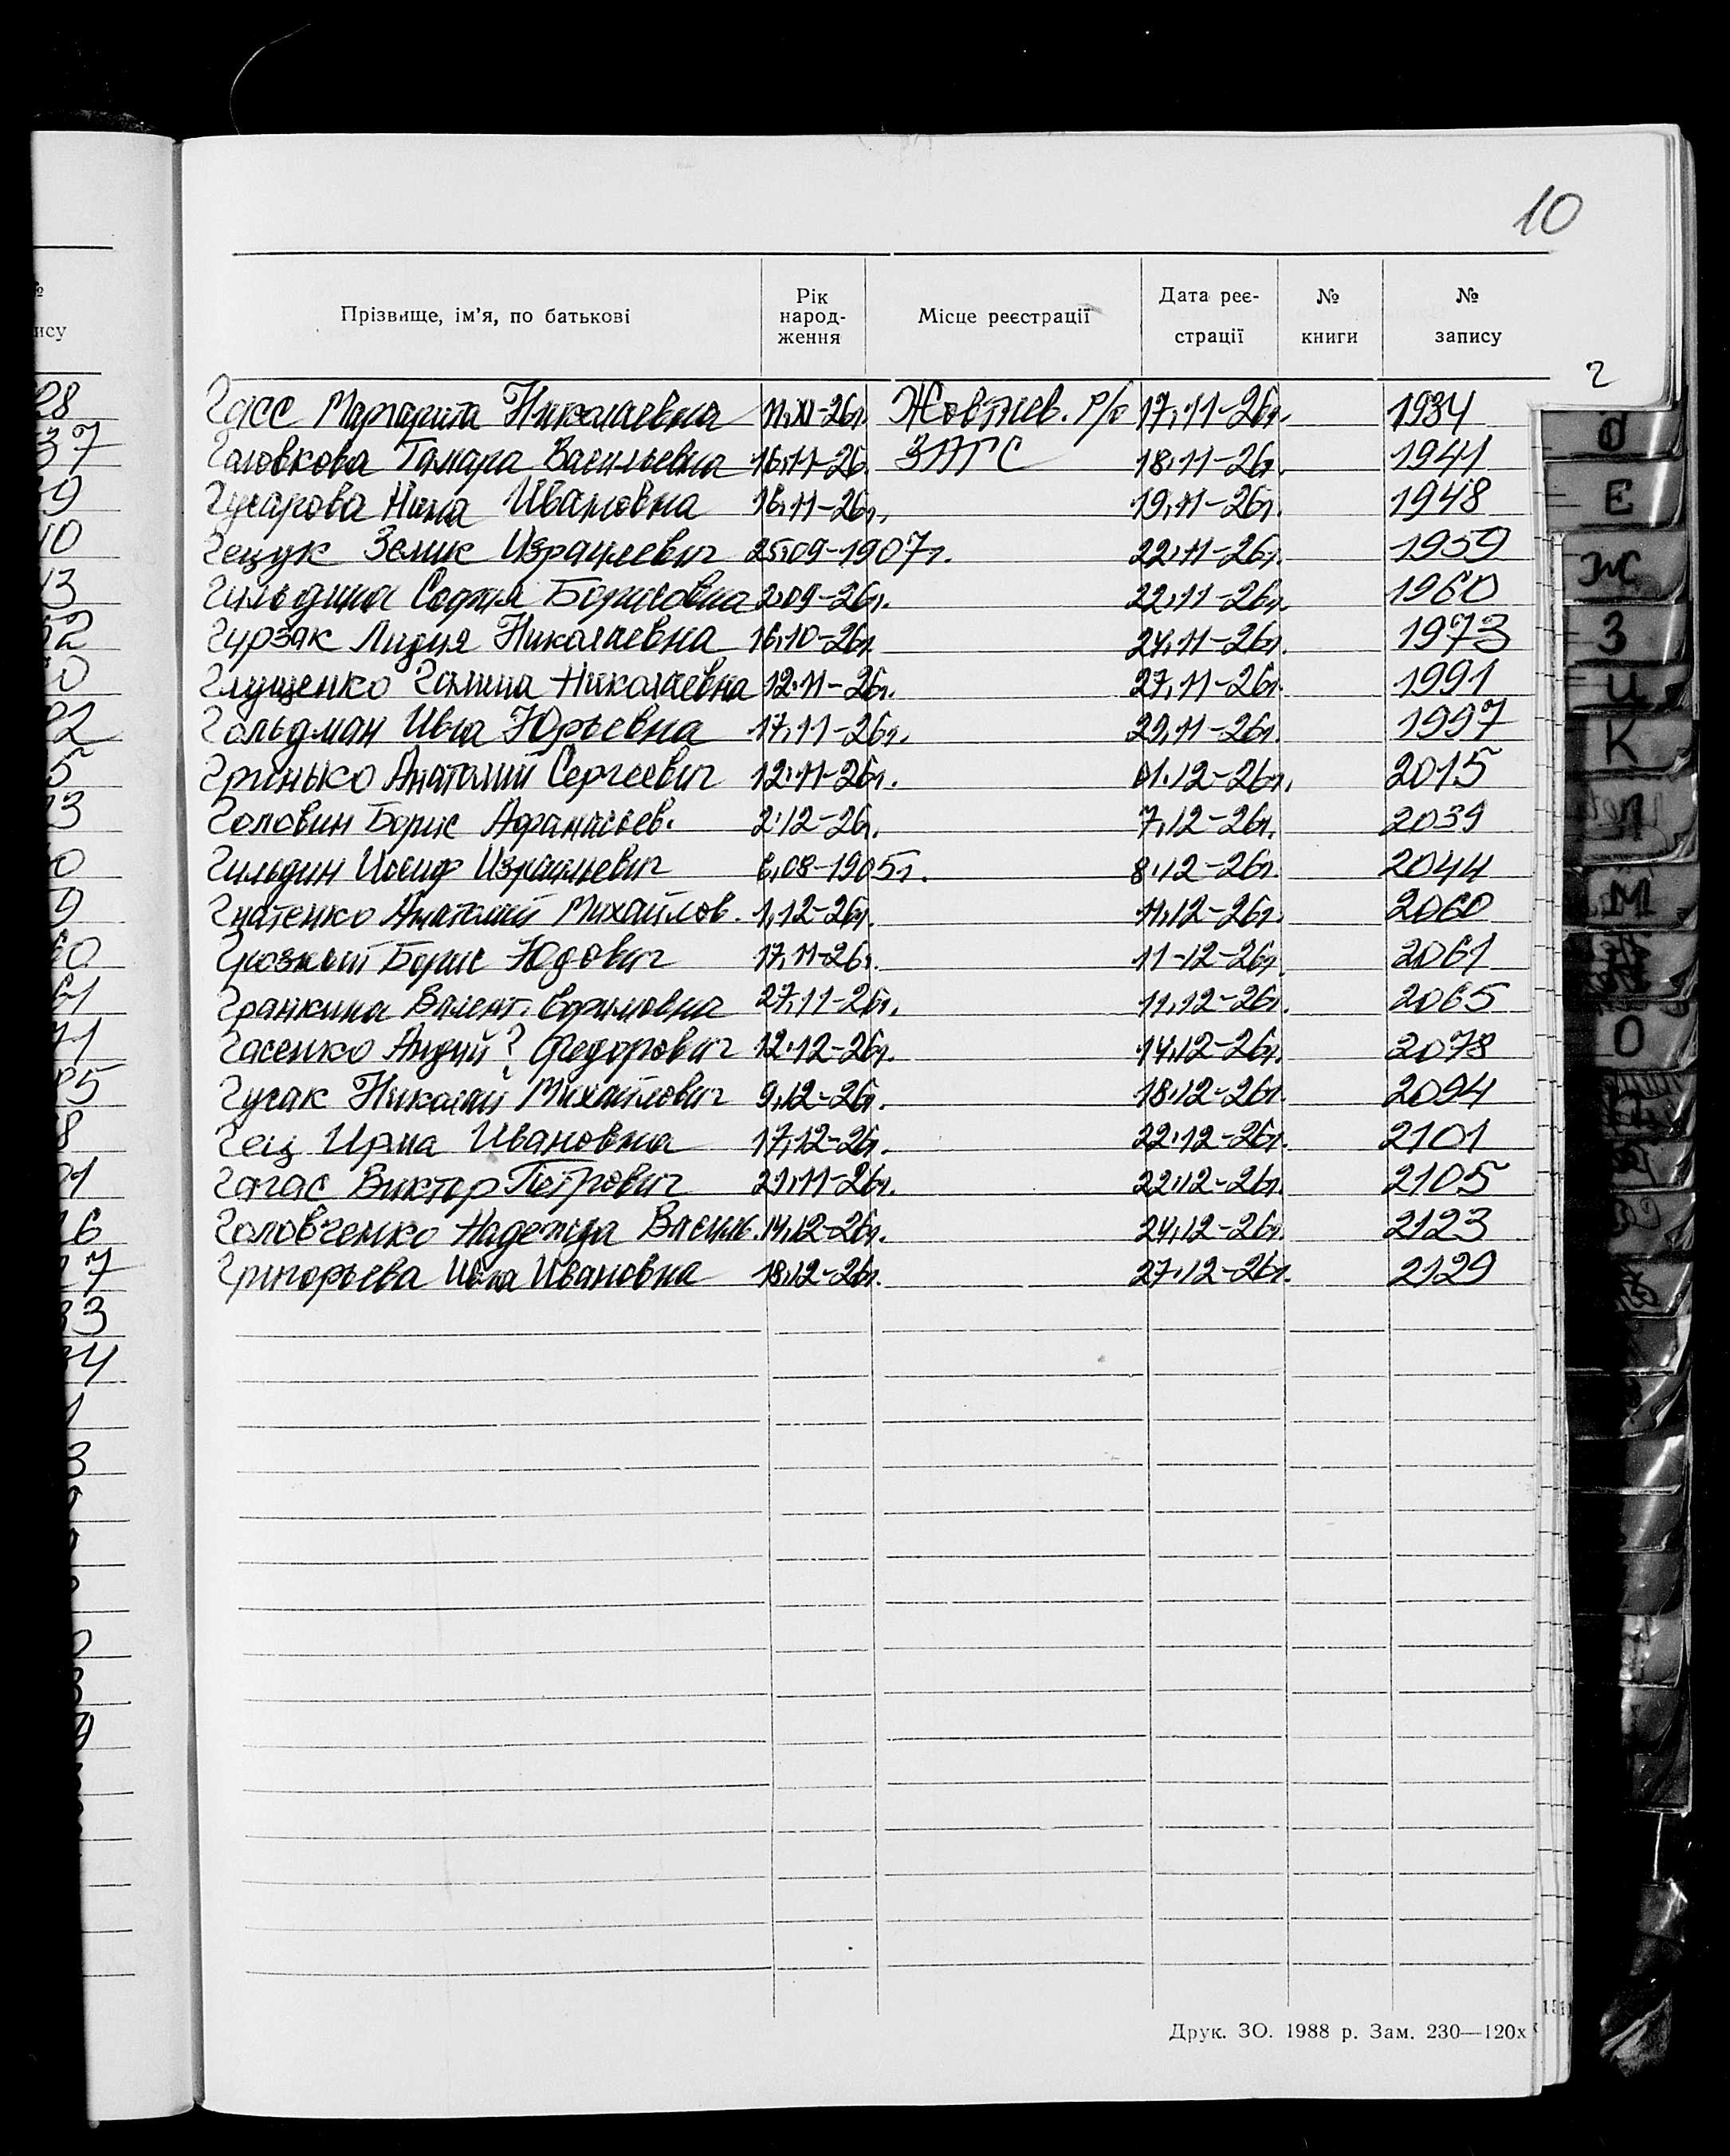 10
Прізвище, ім'я, по батькові Рік народ- ження Місце реєстрації Дата реє- страції № книги № запису
г
Гасс Маргарита Николаевна 11.XI-26г. Жовтнев. р/о 17.11-26г. 1934
Головкова Тамара Васильевна 16.11-26. ЗАГС 18.11-26г. 1941
Гусарова Нина Ивановна 16.11-26г. 19.11-26г. 1948
Гецук Зелик Израилевич 25.09-1907г. 22.11-26г. 1959
Гильдина София Борисовна 2.09-26г. 22.11-26г. 1960
Гурзак Лидия Николаевна 16.10-26г. 24.11-26г. 1973
Глущенко Галина Николаевна 12.11-26г. 27.11-26г. 1991
Гольдман Инна Юрьевна 17.11-26г. 29.11-26г. 1997
Гринько Анатолий Сергеевич 12.11-26г. 01.12-26г. 2015
Головин Борис Афанасьев. 2.12-26г. 7.12-26г. 2039
Гильдин Иосиф Израильевич 6.08-1905г. 8.12-26г. 2044
Гнатенко Анатолий Михайлов. 1.12-26г. 11.12-26г. 2060
Грозный Борис Юдович 17.11-26г. 11-12-26г. 2061
Гранкина Валент. Ефимовна 27.11-26г. 11.12-26г. 2065
Гасенко Андрий? Федорович 12.12-26г. 14.12-26г. 2078
Гусак Николай Михайлович 9.12-26г. 18.12-26г. 2094
Гец Ирма Ивановна 17.12-26г. 22.12-26г. 2101
Гагас Виктор Петрович 29.11-26г. 22.12-26г. 2105
Головченко Надежда Василь. 14.12-26г. 24.12-26г. 2123
Григорьева Инна Ивановна 18.12-26г. 27.12-26г. 2129
Друк. ЗО. 1988 р. Зам. 230—120х
Е
Ж
З
И
К
Л
М
О